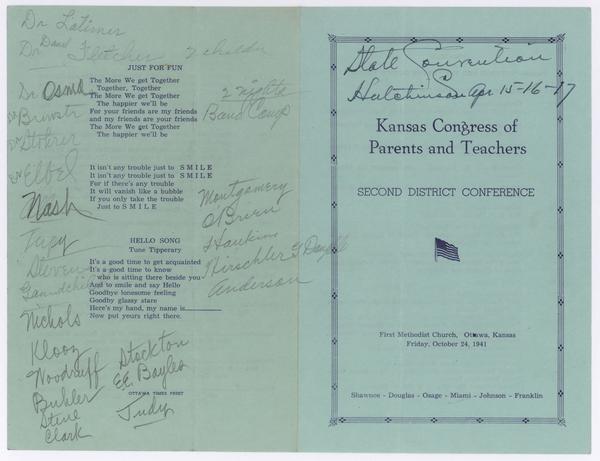 Dr Latimer
Dr David Fletcher 2 childr
Dr Osma
Dr Brewstr
Dr Stohrer
Dr Elbel
Nash
Tapy
Stevens
Nichols
Klooz
Woodruff
Buhler
Stine
Clark
Stockton
E.E. Bayles
Judy
JUST FOR FUN
The More We get Together
Together, Together
The More We get Together
The happier we'll be
For your friends are my friends
and my friends are your friends
The More We get Together
The happier we'll be
2 nights
Band Camp
It isn't any trouble just to S M I L E
It isn't any trouble just to S M I L E
For if there's any trouble
It will vanish like a bubble
If you only take the trouble
Just to S M I L E
Montgomery
O Brien
Hawkins
Hirschler
Anderson
HELLO SONG
Tune Tipperary
It's a good time to get acquainted
It's a good time to know
who is sitting there beside you
And to smile and say Hello
Goodbye lonesome feeling
Goodbye glassy stare
Here's my hand, my name is
Now put yours right there.
OTTAWA TIMES PRINT
State Convention
Hutchinson Apr 15-16-17
Kansas Congress of
Parents and Teachers
SECOND DISTRICT CONFERENCE
First Methodist Church, Ottawa, Kansas
Friday, October 24, 1941
Shawnee - Douglas - Osage - Miami - Johnson - Franklin